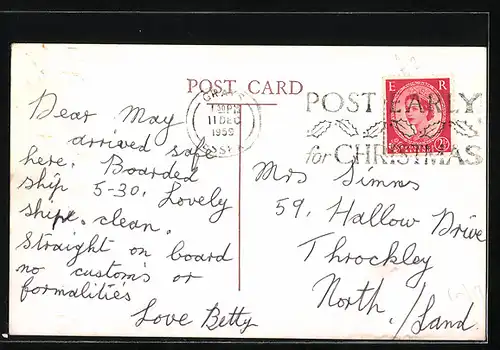 POST CARD
GRAYS
1 30 PM
11 DEC
1959
ESSEX
POST EARLY
for CHRISTMAS
E R
Dear May
arrived safe
here. Boarded
ship 5-30. Lovely
ship. clean.
Straight on board
no customs or
formalities
Love Betty
Mrs Simms
59, Hallow Drive
Throckley
North/Land.